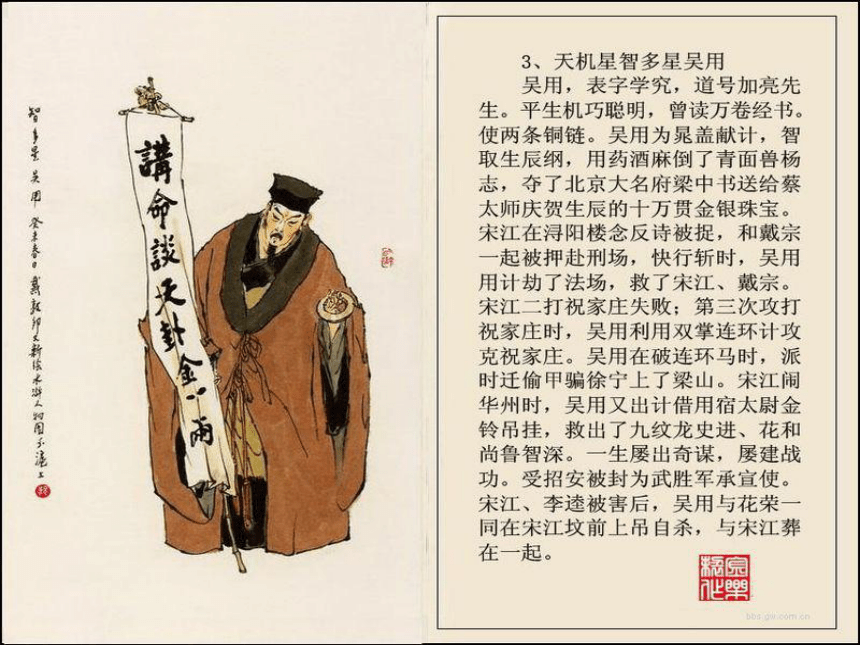 智多星 吴用 癸未春日 戴敦邦又新绘水浒人物图于沪上
講命談天卦金一兩
3、天机星智多星吴用
吴用，表字学究，道号加亮先
生。平生机巧聪明，曾读万卷经书。
使两条铜链。吴用为晁盖献计，智
取生辰纲，用药酒麻倒了青面兽杨
志，夺了北京大名府梁中书送给蔡
太师庆贺生辰的十万贯金银珠宝。
宋江在浔阳楼念反诗被捉，和戴宗
一起被押赴刑场，快行斩时，吴用
用计劫了法场，救了宋江、戴宗。
宋江二打祝家庄失败；第三次攻打
祝家庄时，吴用利用双掌连环计攻
克祝家庄。吴用在破连环马时，派
时迁偷甲骗徐宁上了梁山。宋江闹
华州时，吴用又出计借用宿太尉金
铃吊挂，救出了九纹龙史进、花和
尚鲁智深。一生屡出奇谋，屡建战
功。受招安被封为武胜军承宣使。
宋江、李逵被害后，吴用与花荣一
同在宋江坟前上吊自杀，与宋江葬
在一起。
bbs.gw.com.cn